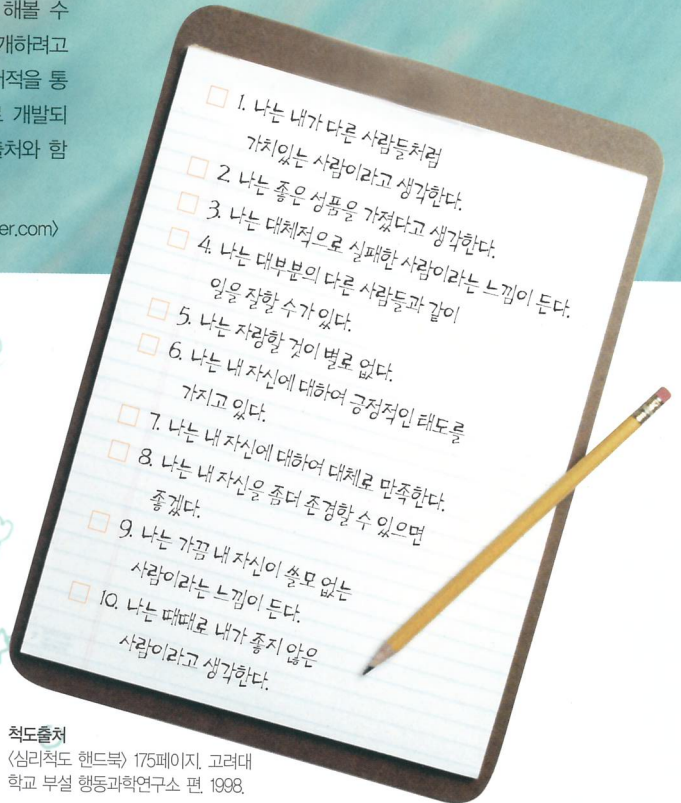 해볼 수
개하려고
저적을 통
로 개발되
출처와 함
er.com〉
1. 나는 내가 다른 사람들처럼
가치있는 사람이라고 생각한다.
2. 나는 좋은 성품을 가졌다고 생각한다.
3. 나는 대체적으로 실패한 사람이라는 느낌이 든다.
4. 나는 대부분의 다른 사람들과 같이
일을 잘할 수가 있다.
5. 나는 자랑할 것이 별로 없다.
6. 나는 내 자신에 대하여 긍정적인 태도를
가지고 있다.
7. 나는 내 자신에 대하여 대체로 만족한다.
8. 나는 내 자신을 좀더 존경할 수 있으면
좋겠다.
9. 나는 가끔 내 자신이 쓸모 없는
사람이라는 느낌이 든다.
10. 나는 때때로 내가 좋지 않은
사람이라고 생각한다.
척도출처
〈심리척도 핸드북〉 175페이지. 고려대
학교 부설 행동과학연구소 편. 1998.